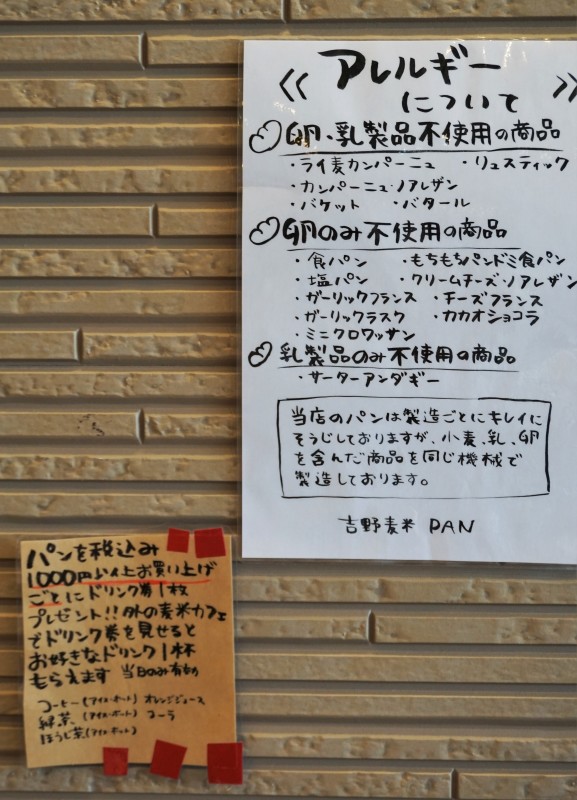 ≪ アレルギー ≫
について
卵・乳製品不使用の商品
・ライ麦カンパーニュ ・リュスティック
・カンパーニュ・ノアレザン
・バケット ・バタール
卵のみ不使用の商品
・食パン ・もちもちパンドミ食パン
・塩パン ・クリームチーズ・ノアレザン
・ガーリックフランス ・チーズフランス
・ガーリックラスク ・カカオショコラ
・ミニクロワッサン
乳製品のみ不使用の商品
・サーターアンダギー
当店のパンは製造ごとにキレイに
そうじしておりますが、小麦、乳、卵
を含んだ商品を同じ機械で
製造しております。
吉野麦米 PAN
パンを税込み
1000円以上お買い上げ
ごとにドリンク券1枚
プレゼント!!外の麦米カフェ
でドリンク券を見せると
お好きなドリンク1杯
もらえます 当日のみ有効
コーヒー(アイス・ホット) オレンジジュース
緑茶 (アイス・ホット) コーラ
ほうじ茶(アイス・ホット)